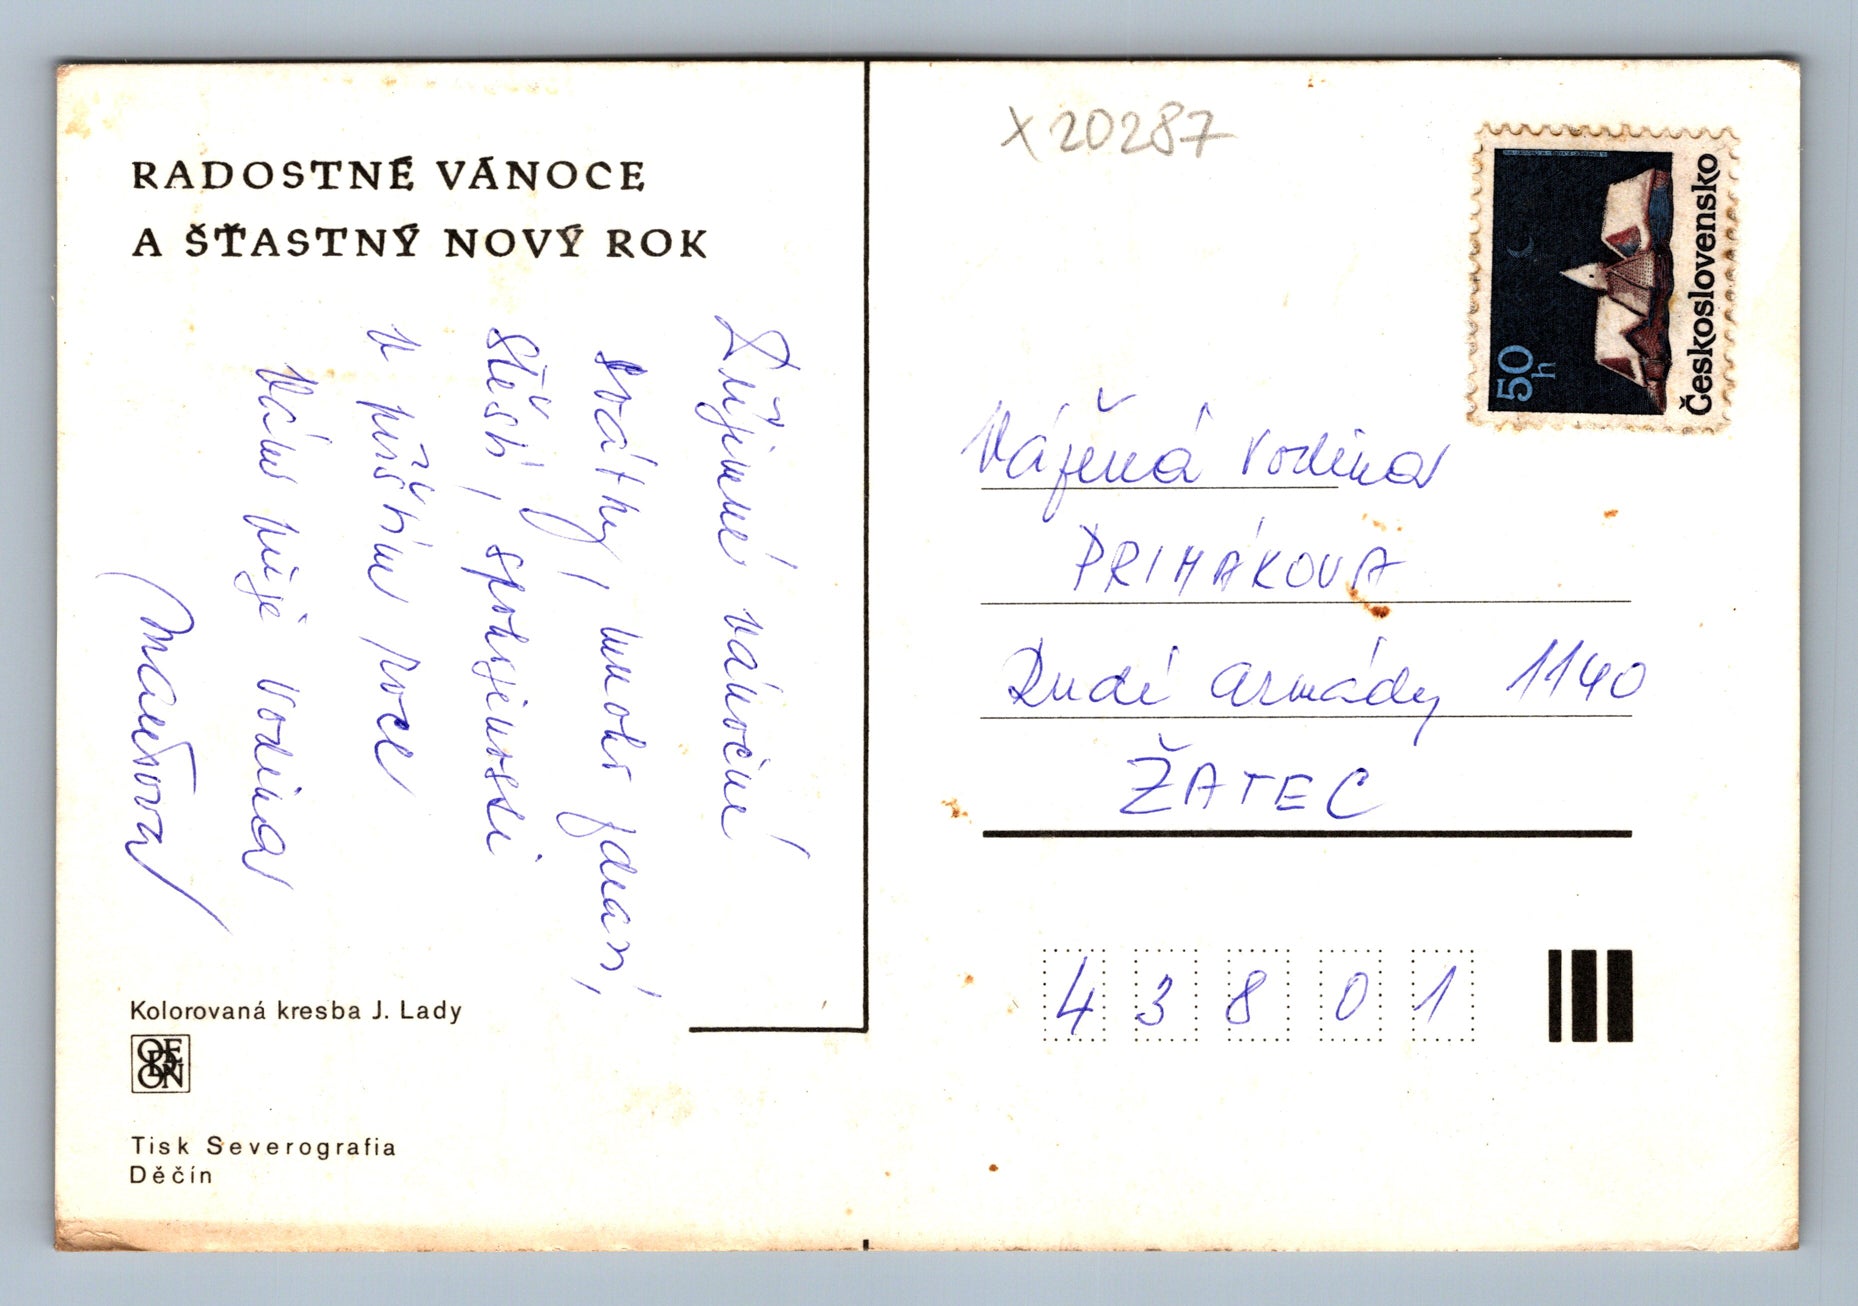 RADOSTNÉ VÁNOCE
A ŠŤASTNÝ NOVÝ ROK
Příjemné vánoční
svátky, mnoho zdraví,
štěstí, spokojenosti
v příštím roce
Vám přeje rodina
Kolorovaná kresba J. Lady
ODEON
Tisk Severografia
Děčín
X 20287
Československo
50
h
Vážená rodina
PRIMÁKOVA
Rudé armády 1140
ŽATEC
43801